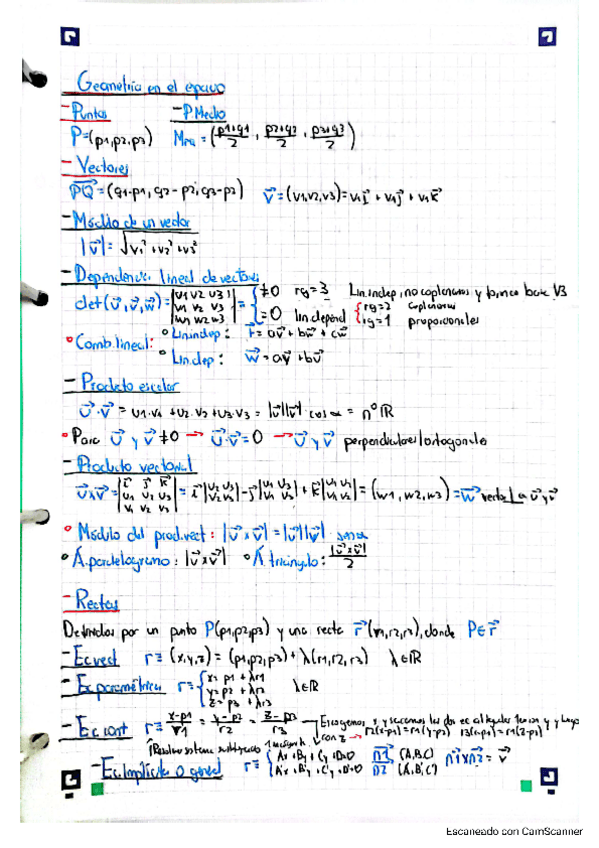 Geometría en el espacio
- Puntos - P.Medio
P=(p1,p2,p3) M_PQ = (p1+q1/2 , p2+q2/2 , p3+q3/2)
- Vectores
PQ⃗=(q1-p1, q2-p2, q3-p3) v⃗=(v1,v2,v3)=v1i⃗+v1j⃗+v1k⃗
- Módulo de un vector
|v⃗|=√v1²+v2²+v3²
- Dependencia lineal de vectores
det(u⃗,v⃗,w⃗)=|U1 U2 U3; V1 V2 V3; W1 W2 W3|= { ≠0 rg=3 Lin.indep, no coplanarios y forman base V3
=0 lin.depend { rg=2 coplanarios
rg=1 proporcionales
• Comb.lineal: • Lin.indep: t⃗=au⃗+bv⃗+cw⃗
• Lin.dep: w⃗=au⃗+bv⃗
- Producto escalar
u⃗·v⃗=U1·V1+U2·V2+U3·V3=|u⃗||v⃗| cos α = nº ℝ
• Para u⃗ y v⃗ ≠0 → u⃗·v⃗=0 → u⃗ y v⃗ perpendiculares/ortogonales
- Producto vectorial
u⃗xv⃗=|i⃗ j⃗ k⃗; U1 U2 U3; V1 V2 V3|=i⃗|U2 U3; V2 V3|-j⃗|U1 U3; V1 V3|+k⃗|U1 U2; V1 V2|=(w1,w2,w3)=w⃗ vector ⊥ a u⃗ y v⃗
• Módulo del prod.vect: |u⃗xv⃗|=|u⃗||v⃗| sen α
• Á.paralelogramo: |u⃗xv⃗| • Á.triángulo: |u⃗xv⃗|/2
- Rectas
Definidas por un punto P(p1,p2,p3) y una recta r⃗(r1,r2,r3), donde P∈r⃗
- Ec.vect r≡(x,y,z)=(p1,p2,p3)+λ(r1,r2,r3) λ∈ℝ
- Ec.paramétrica r≡{x=p1+λr1
y=p2+λr2 λ∈ℝ
z=p3+λr3
- Ec.cont r≡ x-p1/r1 = y-p2/r2 = z-p3/r3 → Escogemos x y sacamos las dos ec y luego
con z → r2(x-p1)=r1(y-p2) r3(x-p1)=r1(z-p3)
- Ec.Implícita o general r≡{Ax+By+Cz+D=0 n1⃗ (A,B,C) n1⃗xn2⃗=v⃗
A'x+B'y+C'z+D'=0 n2⃗ (A',B',C')
Escaneado con CamScanner